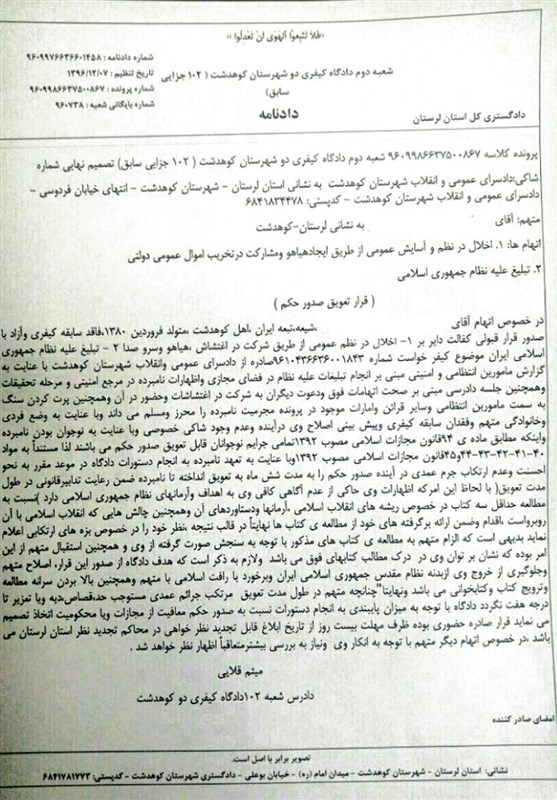 «فَلاَ تَتَّبِعُواْ الْهَوَى أَن تَعْدِلُواْ»
شماره دادنامه : ۹۶۰۹۹۷۶۶۳۶۶۰۱۴۵۸
تاریخ تنظیم : ۱۳۹۶/۱۲/۰۷
شماره پرونده : ۹۶۰۹۹۸۶۶۳۷۵۰۰۸۶۷
شماره بایگانی شعبه : ۹۶۰۷۳۸
شعبه دوم دادگاه کیفری دو شهرستان کوهدشت ( ۱۰۲ جزایی
سابق)
دادنامه
دادگستری کل استان لرستان
پرونده کلاسه ۹۶۰۹۹۸۶۶۳۷۵۰۰۸۶۷ شعبه دوم دادگاه کیفری دو شهرستان کوهدشت ( ۱۰۲ جزایی سابق) تصمیم نهایی شماره
شاکی:دادسرای عمومی و انقلاب شهرستان کوهدشت به نشانی استان لرستان - شهرستان کوهدشت - انتهای خیابان فردوسی -
دادسرای عمومی و انقلاب شهرستان کوهدشت - کدپستی: ۶۸۴۱۸۳۴۴۷۸
متهم: آقای به نشانی لرستان-کوهدشت
اتهام ها: ۱. اخلال در نظم و آسایش عمومی از طریق ایجادهیاهو ومشارکت درتخریب اموال عمومی دولتی
۲. تبلیغ علیه نظام جمهوری اسلامی
( قرار تعویق صدور حکم )
در خصوص اتهام آقای ،شیعه،تبعه ایران ،اهل کوهدشت ،متولد فروردین ۱۳۸۰،فاقد سابقه کیفری وآزاد با
صدور قرار قبولی کفالت دایر بر ۱- اخلال در نظم عمومی از طریق شرکت در اغتشاش ،هیاهو وسرو صدا ۲ - تبلیغ علیه نظام جمهوری
اسلامی ایران موضوع کیفر خواست شماره ۹۶۱۰۴۳۶۶۳۶۰۰۱۸۴۳صادره از دادسرای عمومی وانقلاب شهرستان کوهدشت با عنایت به
گزارش مامورین انتظامی و امنیتی مبنی بر انجام تبلیغات علیه نظام در فضای مجازی واظهارات نامبرده در مرجع امنیتی و مرحله تحقیقات
وهمچنین جلسه دادرسی مبنی بر صحت اتهامات فوق ودعوت دیگران به شرکت در اغتشاشات وحضور در آن وهمچنین پرت کردن سنگ
به سمت مامورین انتظامی وسایر قرائن وامارات موجود در پرونده مجرمیت نامبرده را محرز ومسلم می داند وبا عنایت به وضع فردی
وخانوادگی متهم وفقدان سابقه کیفری وپیش بینی اصلاح وی درآینده وعدم وجود شاکی خصوصی وبا عنایت به نوجوان بودن نامبرده
واینکه مطابق ماده ی ۹۴قانون مجازات اسلامی مصوب ۱۳۹۲تمامی جرایم نوجوانان قابل تعویق صدور حکم می باشند لذا مستنداً به مواد
۴۰-۴۱-۴۲-۴۳-۴۴و۴۵قانون مجازات اسلامی مصوب ۱۳۹۲وبا عنایت به تعهد نامبرده به انجام دستورات دادگاه در موعد مقرر به نحو
احسنت وعدم ارتکاب جرم عمدی در آینده صدور حکم را به مدت شش ماه به تعویق انداخته تا نامبرده ضمن رعایت تدابیرقانونی در طول
مدت تعویق( با لحاظ این امرکه اظهارات وی حاکی از عدم آگاهی کافی وی به اهداف وآرمانهای نظام جمهوری اسلامی دارد )نسبت به
مطالعه حداقل سه کتاب در خصوص ریشه های انقلاب اسلامی ،آرمانها ودستاوردهای آن وهمچنین چالش هایی که انقلاب اسلامی با آن
روبرواست ،اقدام وضمن ارائه برگرفته های خود از مطالعه ی کتاب ها نهایتاً در قالب نتیجه ،نظر خود را در خصوص بزه های ارتکابی اعلام
نماید بدیهی است که الزام متهم به مطالعه ی کتاب های مذکور با توجه به سنجش صورت گرفته از وی و همچنین استقبال متهم از این
امر بوده که نشان بر توان وی در درک مطالب کتابهای فوق می باشد ولازم به ذکر است که هدف دادگاه از صدور این قرار، اصلاح متهم
وجلوگیری از خروج وی ازبدنه نظام مقدس جمهوری اسلامی ایران وبرخورد با رافت اسلامی با متهم وهمچنین بالا بردن سرانه مطالعه
وترویج کتاب وکتابخوانی می باشد ونهایتا" چنانچه متهم در طول مدت تعویق مرتکب جرائم عمدی مستوجب حد،قصاص،دیه ویا تعزیر تا
درجه هفت نگردد دادگاه با توجه به میزان پایبندی به انجام دستورات نسبت به صدور حکم معافیت از مجازات ویا محکومیت اتخاذ تصمیم
می نماید قرار صادره حضوری بوده ظرف مهلت بیست روز از تاریخ ابلاغ قابل تجدید نظر خواهی در محاکم تجدید نظر استان لرستان می
باشد ،در خصوص اتهام دیگر متهم با توجه به انکار وی ونیاز به بررسی بیشترمتعاقباً اظهار نظر خواهد شد .
میثم قلایی
دادرس شعبه ۱۰۲دادگاه کیفری دو کوهدشت
امضای صادر کننده
تصویر برابر با اصل است.
نشانی: استان لرستان - شهرستان کوهدشت - میدان امام (ره) - خیابان بوعلی - دادگستری شهرستان کوهدشت - کدپستی: ۶۸۴۱۷۸۱۷۷۳